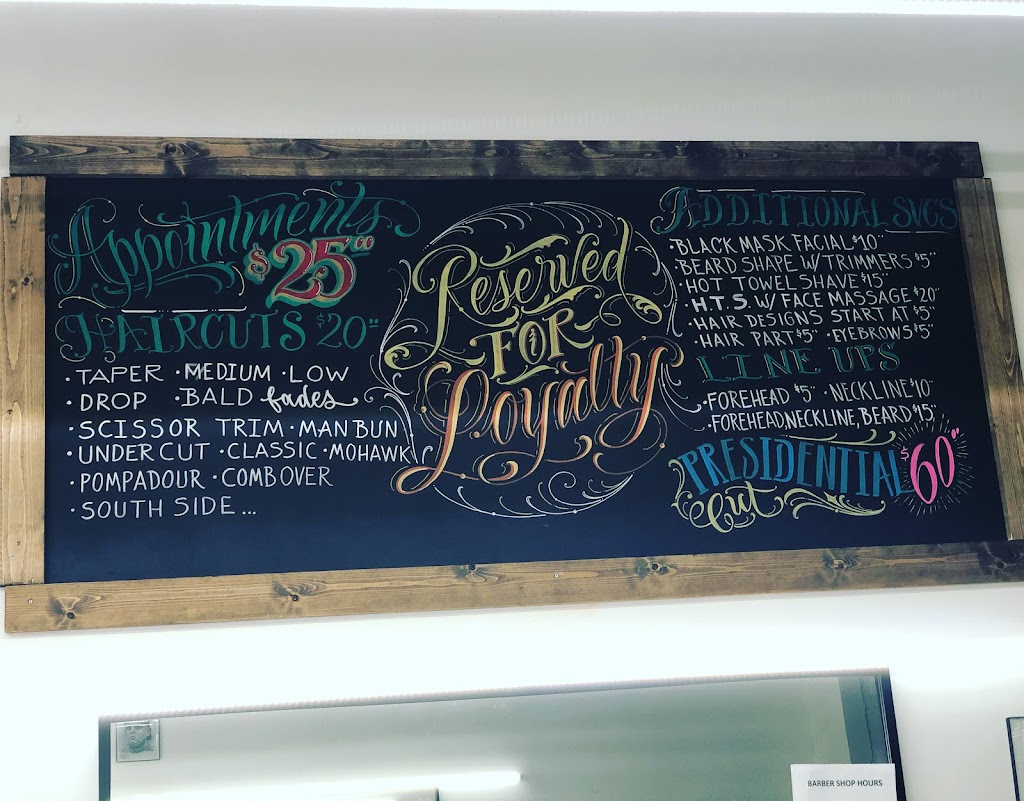 Appointments
$25°°
HAIRCUTS $20°°
·TAPER ·MEDIUM ·LOW
·DROP ·BALD fades
·SCISSOR TRIM ·MAN BUN
·UNDER CUT ·CLASSIC ·MOHAWK
·POMPADOUR ·COMB OVER
·SOUTH SIDE...
Reserved
FOR
Loyalty
ADDITIONAL SVCS
·BLACK MASK FACIAL $10°°
·BEARD SHAPE W/ TRIMMERS $5°°
·HOT TOWEL SHAVE $15°°
·H.T.S W/ FACE MASSAGE $20°°
·HAIR DESIGNS START AT $5°°
·HAIR PART $5°° ·EYEBROWS $5°°
LINE UPS
·FOREHEAD $5°° ·NECKLINE $10°°
·FOREHEAD, NECKLINE, BEARD $15°°
PRESIDENTIAL $60°°
Cut
BARBER SHOP HOURS